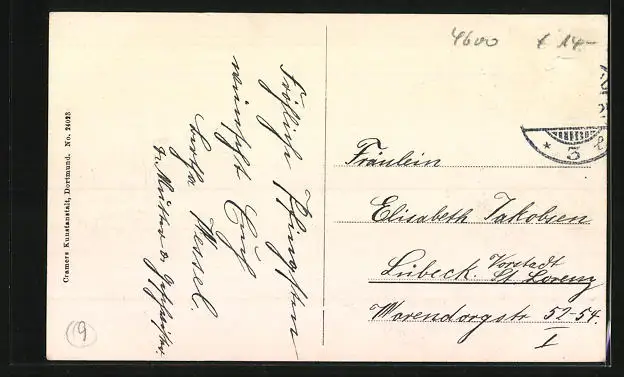 Cramers Kunstanstalt, Dortmund. No. 24023
Fröhliche Pfingsten
wünscht Euch
Bertha Wessel.
Fr. Mutter u. Geschwister.
9
4600
14-
3
Fräulein
Elisabeth Jakobsen
Lübeck. Vorstadt
St Lorenz
Warendorgstr 52-54.
I